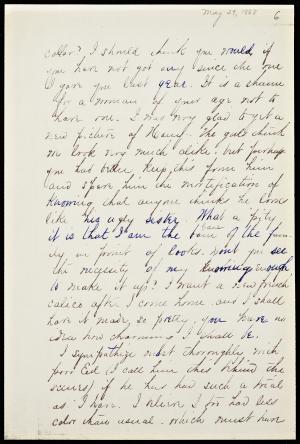 May 29, 1868
6
collar? I should think you would, if
you have not got any since the one
I gave you last year. It is a shame
for a woman of your age not to
have one. I was very glad to get a
new picture of Henry. The girls think
we look very much alike. but perhaps
you had better keep this from him
and spare him the mortification of
knowing that anyone thinks he looks
like his ugly sister. What a pity
it is that I am the bane of the fami-
ly, in point of looks. Dont you see
the necessity of my knowing enough
to make it up? I want a new French
calico after I come home and I shall
have it made so pretty, you have no
idea how charming I shall be.
I sympathize most thoroughly with
poor Ed (I call him this behind the
scenes) if he has had such a trial
as I have. I believe I have had less
color than usual. which must have